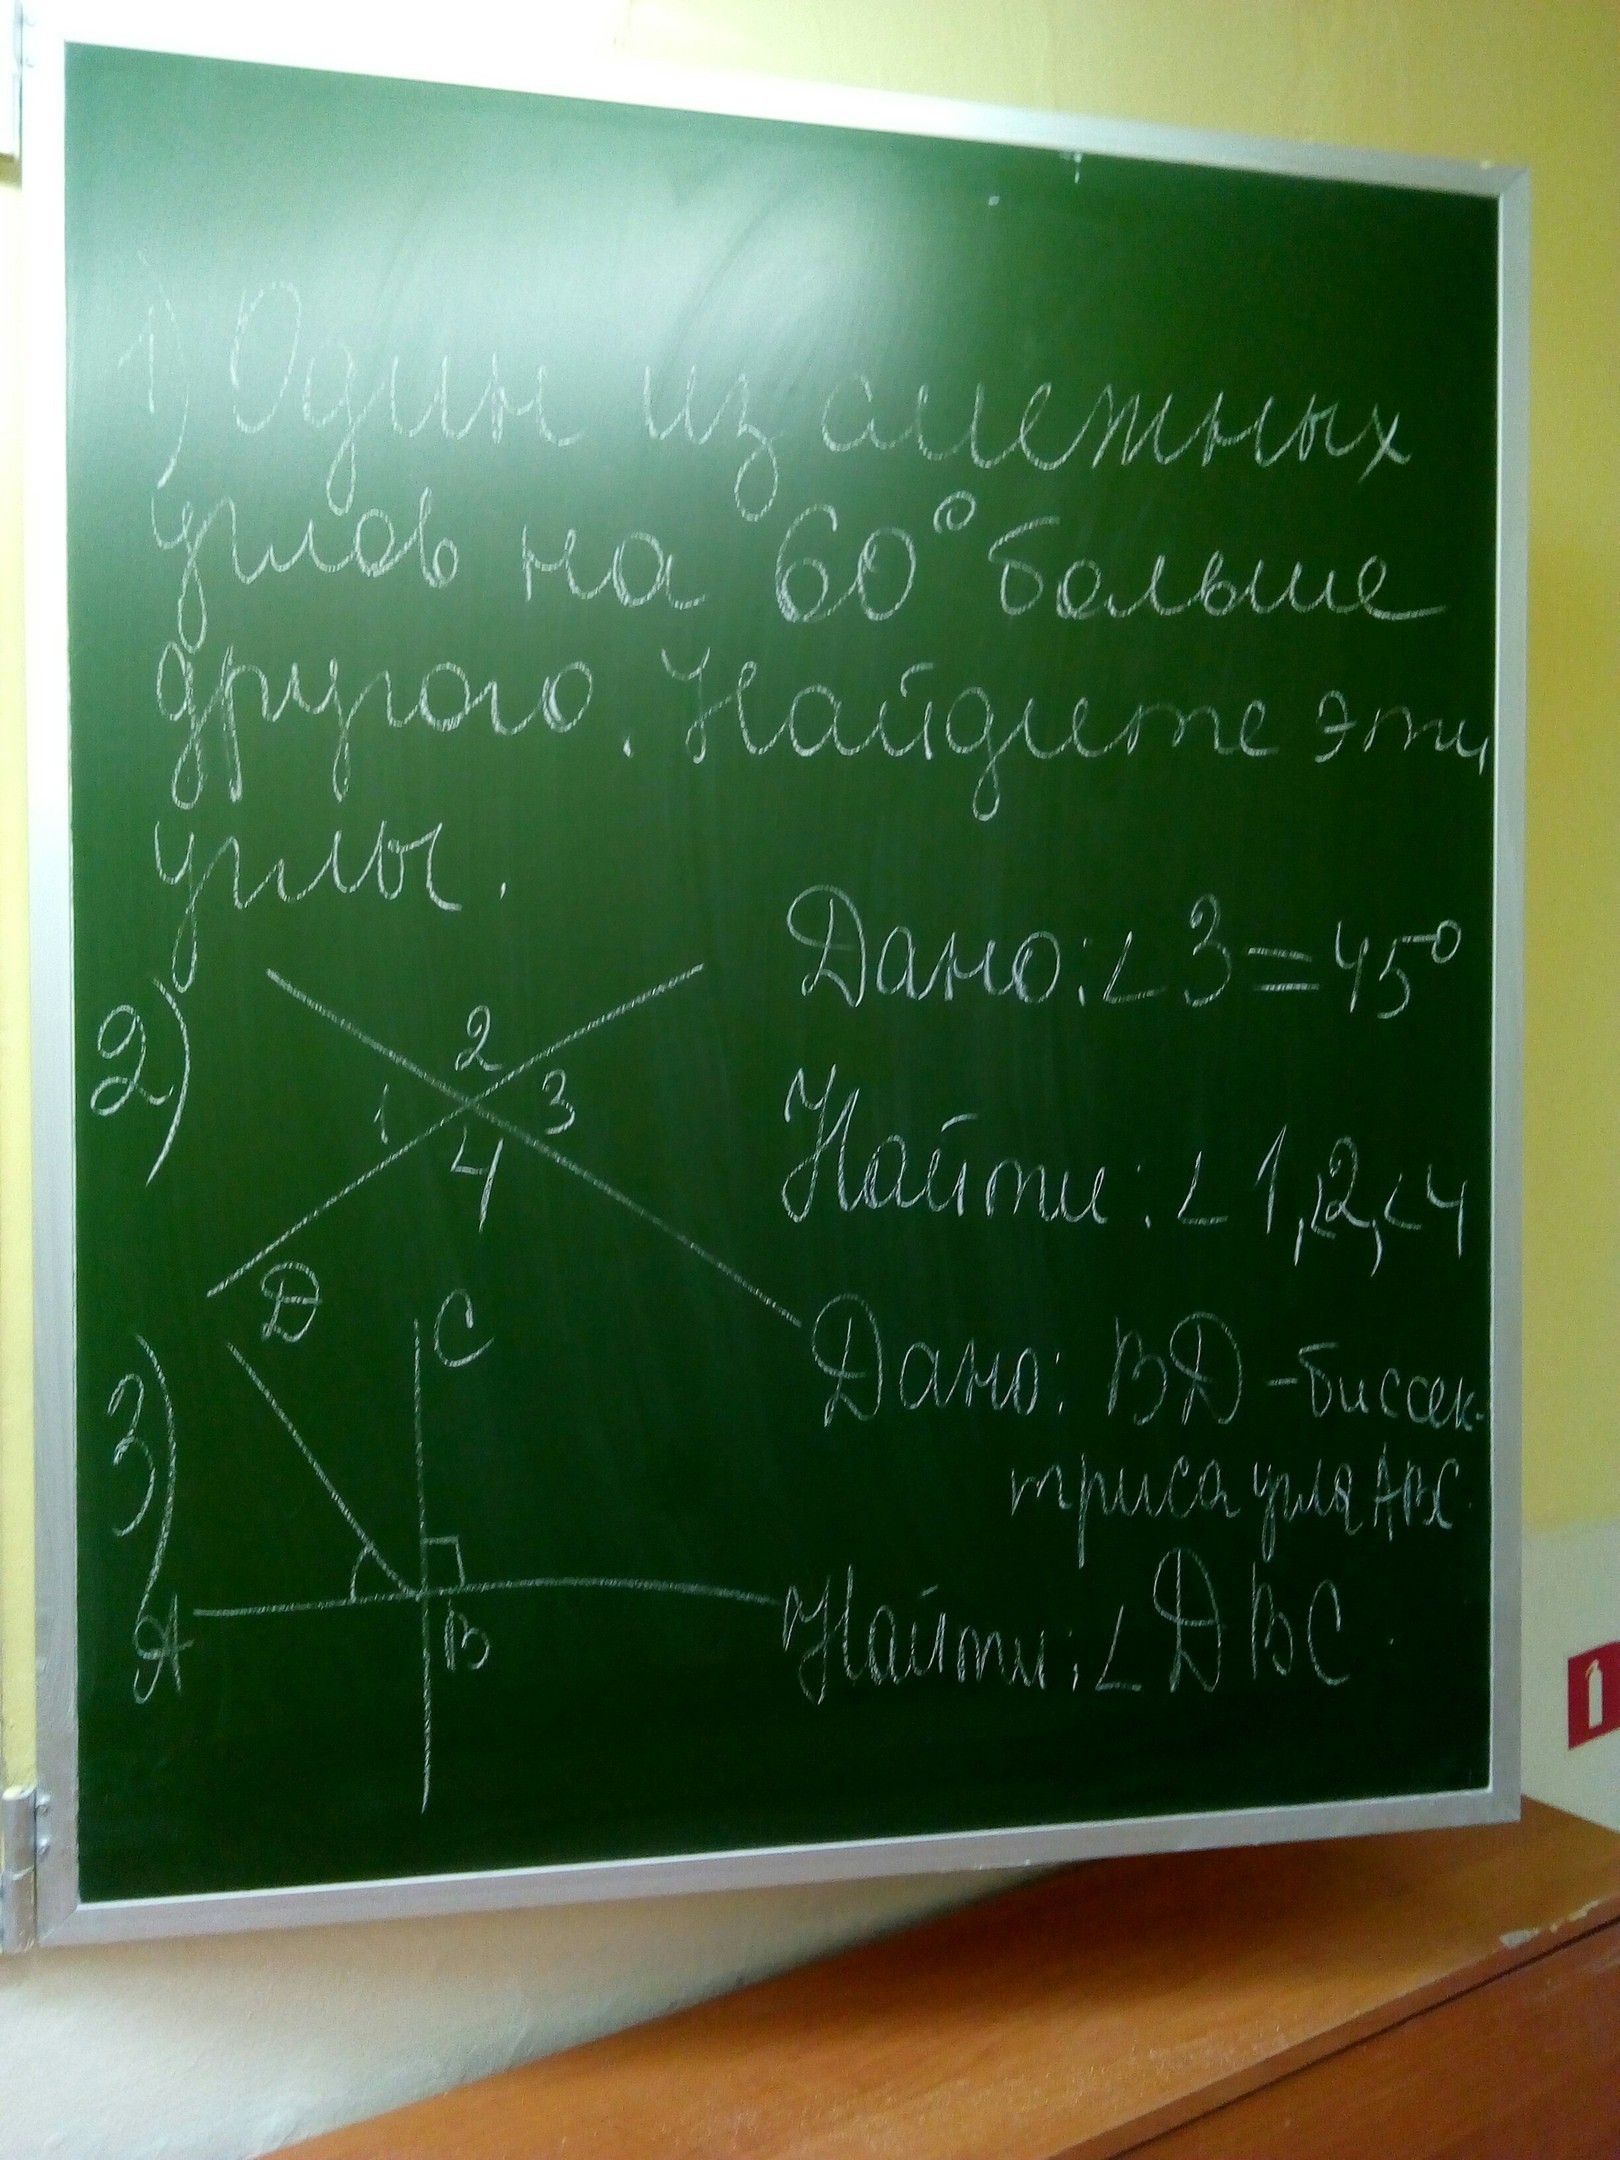 1) Один из смежных
углов на 60° больше
другого. Найдите эти
углы.
2)
1
2
3
4
Дано: ∠3=45°
Найти: ∠1,∠2,∠4
3)
D
C
A
B
Дано: BD-биссек-
триса угла ABC.
Найти: ∠DBC.